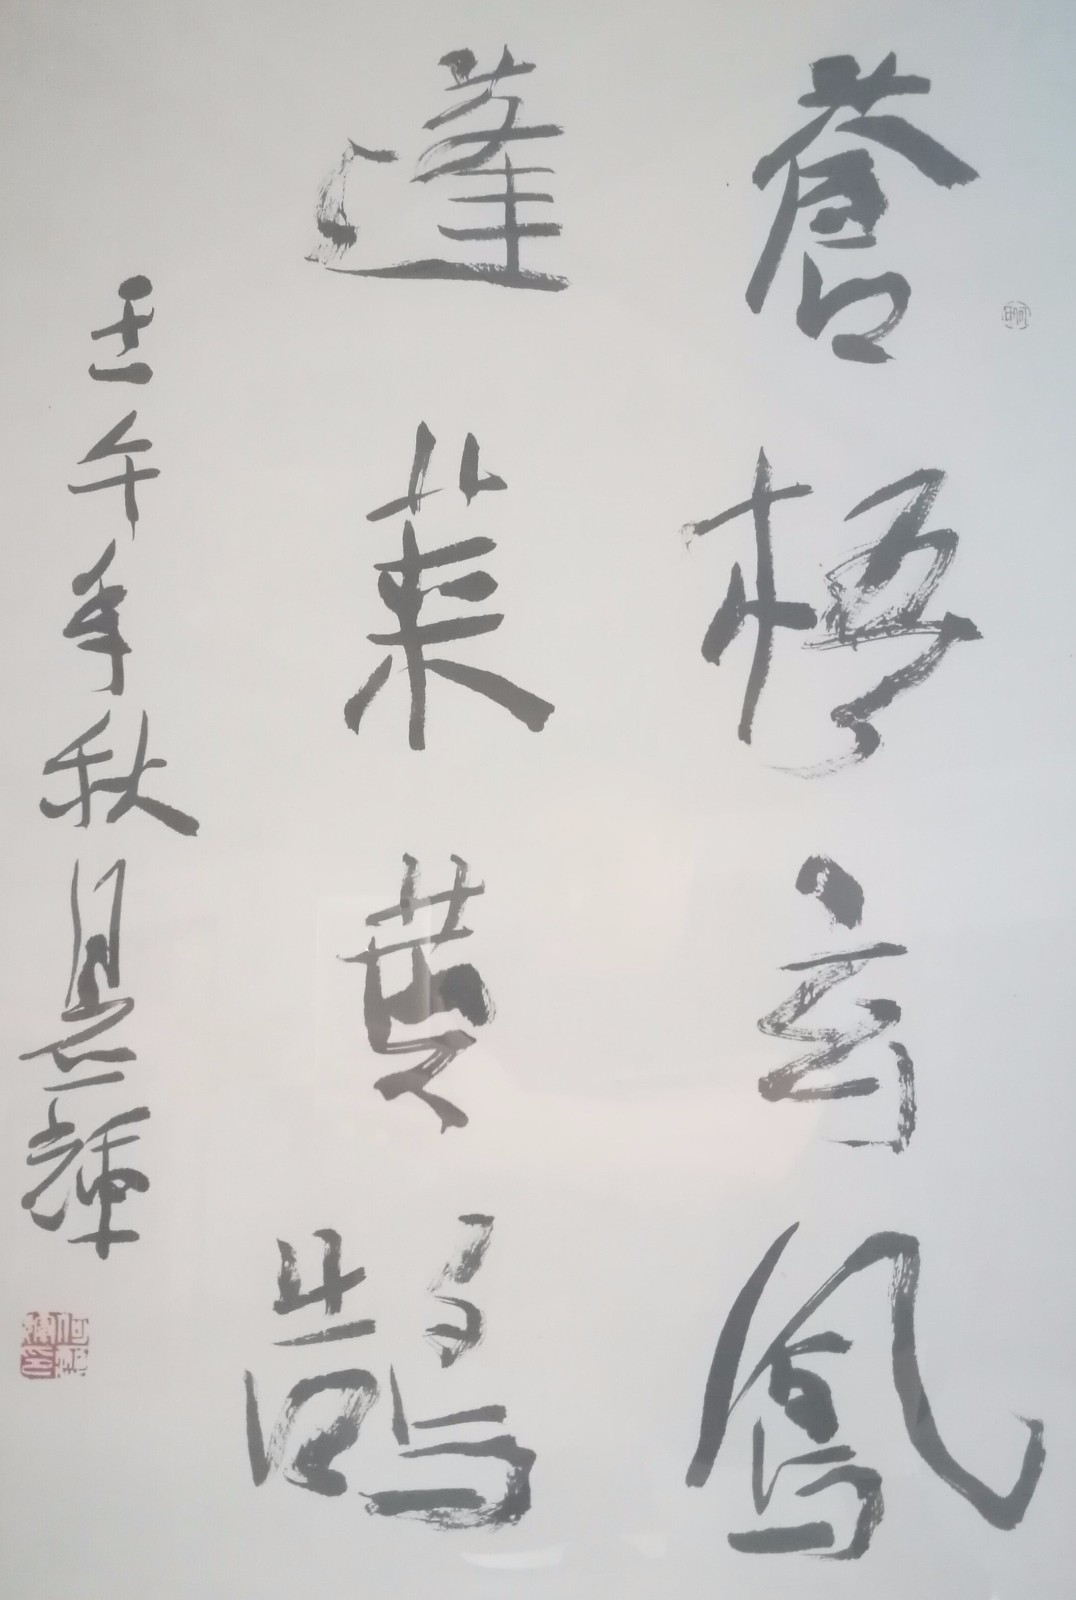 蒼梧玄鳳
蓬萊黄鵠
壬午年秋月 輝